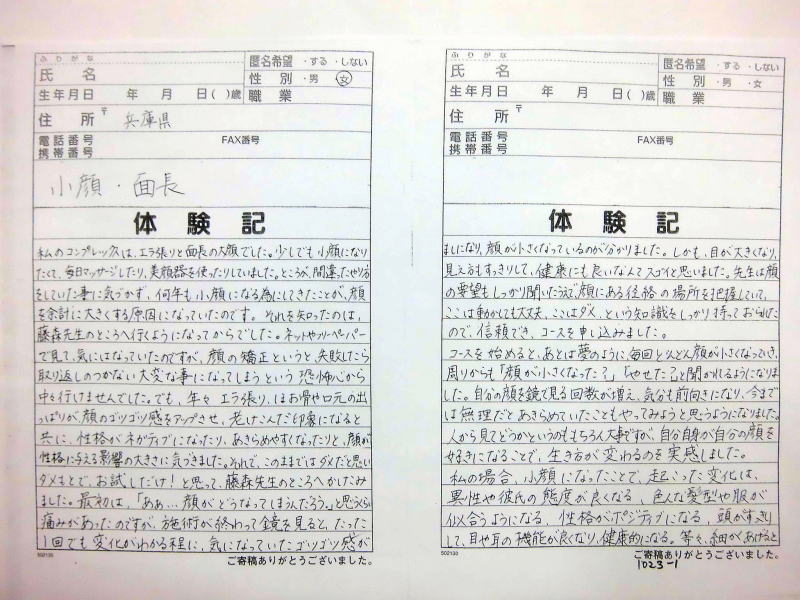 ふりがな
氏名
匿名希望 ・する ・しない
性別 ・男 ・女
生年月日 年 月 日( )歳
職業
住所 〒 兵庫県
電話番号
携帯番号
FAX番号
小顔・面長
体験記
私のコンプレックスは、エラ張りと面長の大顔でした。少しでも小顔になり
たくて、毎日マッサージしたり、美顔器を使ったりしていました。ところが、間違ったやり方
をしていた事に気づかず、何年も小顔になる為にしてきたことが、顔
を余計に大きくする原因になっていたのです。それを知ったのは、
藤森先生のところへ行くようになってからでした。ネットやフリーペーパー
で見て、気にはなっていたのですが、顔の矯正というと、失敗したら
取り返しのつかない大変な事になってしまうという恐怖心から
中々行けませんでした。でも、年々エラ張り、ほお骨や口元の出
っぱりが、顔のゴツゴツ感をアップさせ、老けこんだ印象になると
共に、性格がネガティブになったり、あきらめやすくなったりと、顔が
性格に与える影響の大きさに気づきました。それで、このままではダメだと思い
ダメもとで、お試しだけ!と思って、藤森先生のところへかけこみ
ました。最初は、「ああ…顔がどうなってしまうんだろう。」と思うくらい
痛みがあったのですが、施術が終わって鏡を見ると、たった
1回でも変化がわかる程に、気になっていたゴツゴツ感が
502130
ご寄稿ありがとうございました。
ふりがな
氏名
匿名希望 ・する ・しない
性別 ・男 ・女
生年月日 年 月 日( )歳
職業
住所 〒
電話番号
携帯番号
FAX番号
体験記
ましになり、顔が小さくなっているのが分かりました。しかも、目が大きくなり、
見え方もすっきりして、健康にも良いなんてスゴイと思いました。先生は顔
の要望もしっかり聞いたうえで顔にある経絡の場所を把握していて、
ここは動かしても大丈夫、ここはダメ、という知識をしっかり持っておられた
ので、信頼でき、コースを申し込みました。
コースを始めると、あとは夢のように、毎回どんどん顔が小さくなっていき、
周りからも「顔が小さくなった?」「やせた?」と聞かれるようになりま
した。自分の顔を鏡で見る回数が増え、気分も前向きになり、今まで
は無理だとあきらめていたこともやってみようと思うようになりました。
人から見てどうかというのももちろん大事ですが、自分自身が自分の顔を
好きになることで、生き方が変わるのを実感しました。
私の場合、小顔になったことで、起こった変化は、
異性や彼氏の態度が良くなる、色んな髪型や服が
似合うようになる、性格がポジティブになる、頭がすっきり
して、目や耳の機能が良くなり、健康的になる。等々、細かくあげると
502130
ご寄稿ありがとうございました。
1023-1